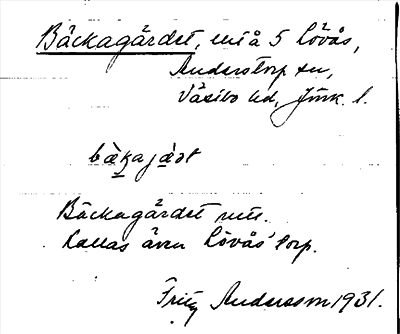 Bäckagärdet, uti å 5 Lövås,
Anderstorp sn,
Västbo hd, Jönk. l.
Bäckagärdet utn.
Kallas även Lövås' torp.
Fritz Andersson 1931.